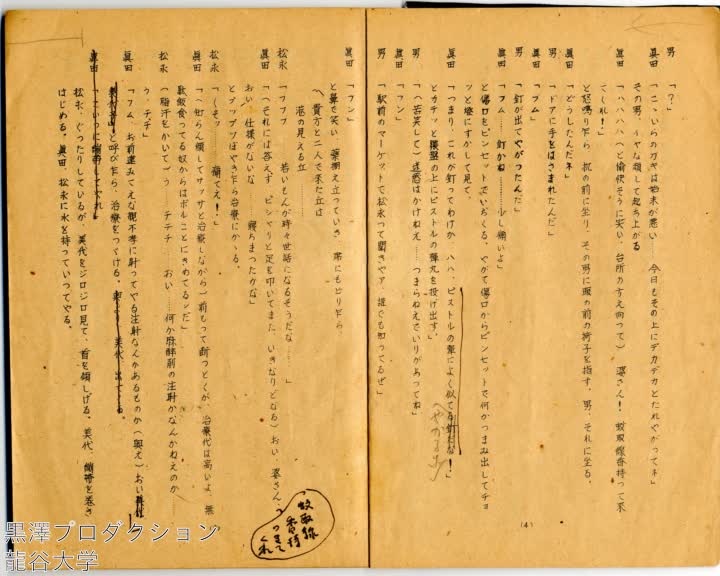 男 「？」
眞田 「こゝいらのガキは始末が悪い 今日もその上にデカデカとたれやがってネ」
その男、イヤな顔して起ち上がる
眞田 「ハハハハハと愉快そうに笑い、台所の方え向って） 婆さん！ 蚊取線香持って来
てくれ！」
と怒鳴り乍ら、机の前に坐り、その男に眼の前の椅子を指す、男、それに坐る。
眞田 「どうしたんだネ」
男 「ドアに手をはさまれたんだ」
眞田 「フム」
男 「釘が出てやがったんだ」
眞田 「フム 釘かね………少し痛いよ」
と傷口をピンセットでいじくる、やがて傷口からピンセットで何かつまみ出してチョ
ッと燈にすかして見て、
眞田 「つまり、これが釘ってわけか ハハ、ピストルの弾によく似てる釘だな！」
とカチッと膿盤の上にピストルの弾丸を投げ出す。
やがるな
男 「（苦笑して）迷惑はかけねえ……つまらねえでいりがあってね」
眞田 「フン」
男 「駅前のマーケットで松永って聞きゃア、誰でも知ってるぜ」
(4)
眞田 「フン」
と鼻で笑い、薬棚え立っていき、席にもどり乍ら、
（貴方と二人で来た丘は
港の見える丘……
松永 「フフフ 若いもんが時々世話になるそうだな…… 」
眞田 「（それには答えず、ピシャリと足を叩いてまた、いきなりどなる）おい、婆さん、
おい、仕様がないな……寝ちまったかな」
とブツブツぼやき乍ら治療にかゝる。
蚊取線
香持
ってきて
くれ
松永 「くそッ……痛てえ！」
眞田 「（町らん顔してサッサと治療しながら）前もって断っとくが、治療代は高いよ、無
駄飯食ってる奴からはボルことにきめてるンだ」
松永 「（脂汗をかいて）う、テテテ おい……何か麻酔剤の注射かなんかねえのか……
う、テテ」
眞田 「フム、お前達みてえな親不孝に射ってやる注射なんかあるものか（奥え）おい美代
と呼び乍ら、治療をつづける。 美代 出て
眞田 「こいつに繃帯してやれ」
松永、ぐったりしているが、美代をジロジロ見て、首を傾しげる。美代、繃帯を巻き
はじめる。眞田、松永に水を持っていってやる。
黒澤プロダクション
龍谷大学